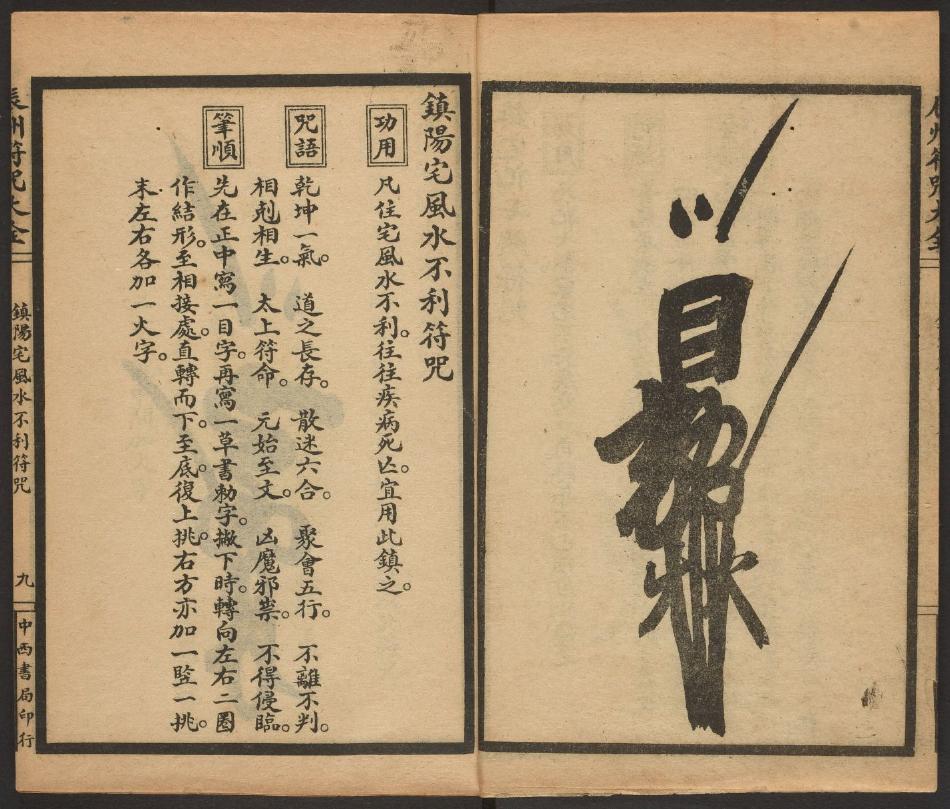 鎮陽宅風水不利符咒
功用
凡住宅風水不利。往往疾病死亾。宜用此鎮之。
咒語
乾坤一氣。道之長存。散迷六合。聚會五行。不離不判。
相剋相生。太上符命。元始至文。凶魔邪祟。不得侵臨。
筆順
先在正中寫一目字。再寫一草書勅字。撇下時。轉向左右二圈
作結形。至相接處。直轉而下。至底。復上挑。右方亦加一竪一挑。
末左右各加一火字。
辰州符咒大全
鎮陽宅風水不利符咒
九
中西書局印行
辰州符咒大全